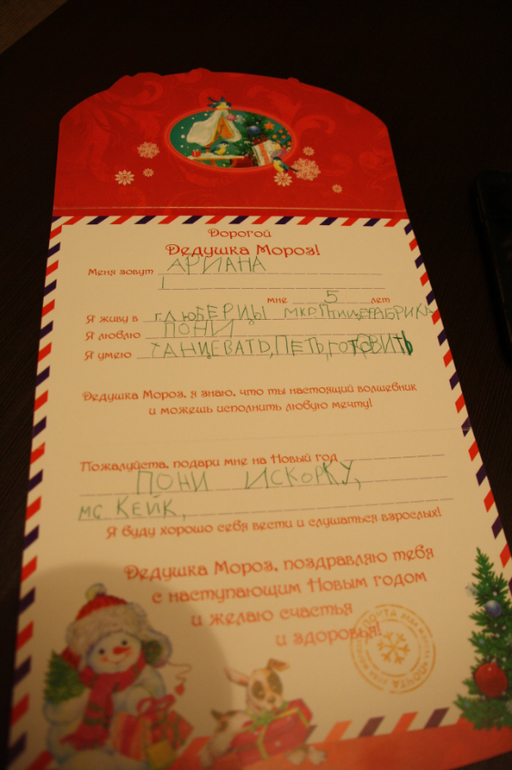 Дорогой
Дедушка Мороз!
Меня зовут АРИАНА
мне 5 лет
Я живу в г.ЛЮБЕРЦЫ МКР.ПТИЦЕФАБРИКА
Я люблю ПОНИ
Я умею ТАНЦЕВАТЬ, ПЕТЬ, ГОТОВИТЬ
Дедушка Мороз, я знаю, что ты настоящий волшебник
и можешь исполнить любую мечту!
Пожалуйста, подари мне на Новый год
ПОНИ ИСКОРКУ,
МС КЕЙК,
Я буду хорошо себя вести и слушаться взрослых!
Дедушка Мороз, поздравляю тебя
с наступающим Новым годом
и желаю счастья
и здоровья!
ПОЧТА